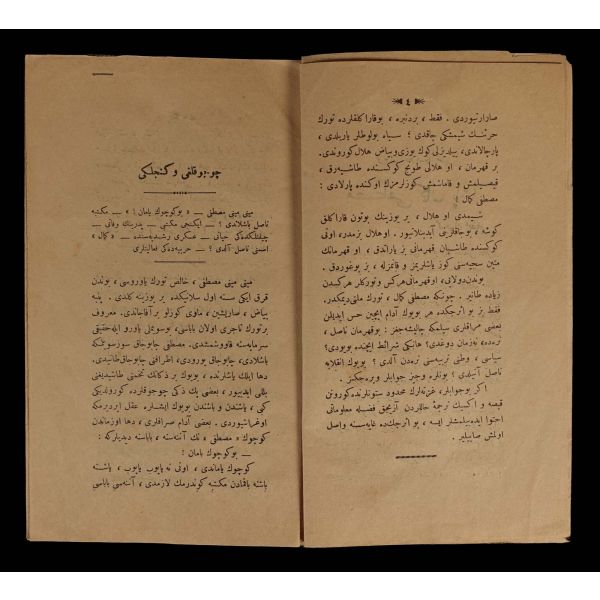 ٤
صارارتیوردی . فقط ، بردنبره ، بو قارا کلقلرده تورك
حرتنك شیمشکی چاقدی ! سیاه بولوطلر یارلدی ،
پارچالاندی، ییلدیزلی کوك یوزی و بیاض هلال کوروندی.
بر قهرمان ، او هلالی طونج کوکسنده طاشیه‌رق ،
قیصیلمش و قاماشمش کوزلرمزك اوکنده پارلادی :
مصطفی کمال .
شیمدی او هلال ، بر یوزینك بوتون قارا کلق
کوشه ، بوجاقلرینی آیدینلاتیور. او هلال بزمدر، اونی
کوکسنده طاشیان قهرمانی بز یاراتدق ، او قهرمانك
متین سجیه‌سنی کوز یاشلریمز و قانمزله ، بز یوغوردق .
بوندن دولایی، او قهرمانی هرکس و تورکلر هرکسدن
زیاده طانیر. چونکه مصطفی کمال ، تورك ملتی دیمکدر.
فقط بز بو اثرجکده هر بویوك آدام ایچین حس ایدیلن
بعضی مراقلری سیلمکه چالیشه‌جغز : بو قهرمان ناصل ،
نره‌ده، نه زمان دوغدی؟ هانکی شرائط ایچنده بویودی؟
سیاسی ، وطنی تربیه‌سنی نره‌دن آلدی ؟ بویوك انقلابه
ناصل آتیلدی ؟ بونلره وجیز جوابلر ویره‌جکز .
اکر بو جوابلر، غزته‌لرك محدود ستونلرنده کورونن
قیصه و اکسیك ترجمهٔ حاللردن آزیجق فضله معلوماتی
احتوا ایده‌بیلمشلر ایسه ، بو اثرجکده غایه‌سنه واصل
اولمش صاییلیر .
چوجوقلغی و کنجلکی
مینی مینی مصطفی — « بو کوچوك یامان ! » — مکتبه
ناصل باشلاندی ؟ — ایکنجی مکتبی — پدرینك وفاتی —
چیفتلکده‌کی حیاتی — عسکری رشدیه‌سنده — «کمال»
اسمنی ناصل آلدی ؟ — حربیه‌ده‌کی فعالیتلری
مینی مینی مصطفی ، خالص تورك یاوروسی ، بوندن
قرق ایکی سنه اول سلانیکده بر یوزینه کلدی . پنبه
بیاض ، صاریشین ، ماوی کوزلو بر آفاجاندی. معروف
بر تورك تاجری اولان باباسی ، بو سویملی یاورو ایله حقیقی
سرمایه‌سنه قاووشمشدی. مصطفی چابوجاق سوزسویلمکه
باشلادی ، چابوجاق یورودی، اطرافنی چابوجاق طانیدی.
دها ایلك باشلرنده ، بویوك بر ذکانك تخمنی طاشیدیغنی
بللی ایدییور ، بعضی پك ذکی چوجوقلرده کورولدیکی
کبی ، یاشندن و باشندن بویوك ایشلره عقل ایردیرمکه
اوغراشیوردی . بعضی آدام صرافلری ، دها اوزماندن
کوچوك « مصطفی » نك آننه‌سنه ، باباسنه دیدیلر که :
— بو کوچوك یامان !
کوچوك یاماندی ، اونی نه یاپوب یاپوب ، یاشنه
باشنه باقمادن مکتبه کوندرمك لازمدی ، آننه‌سی باباسی